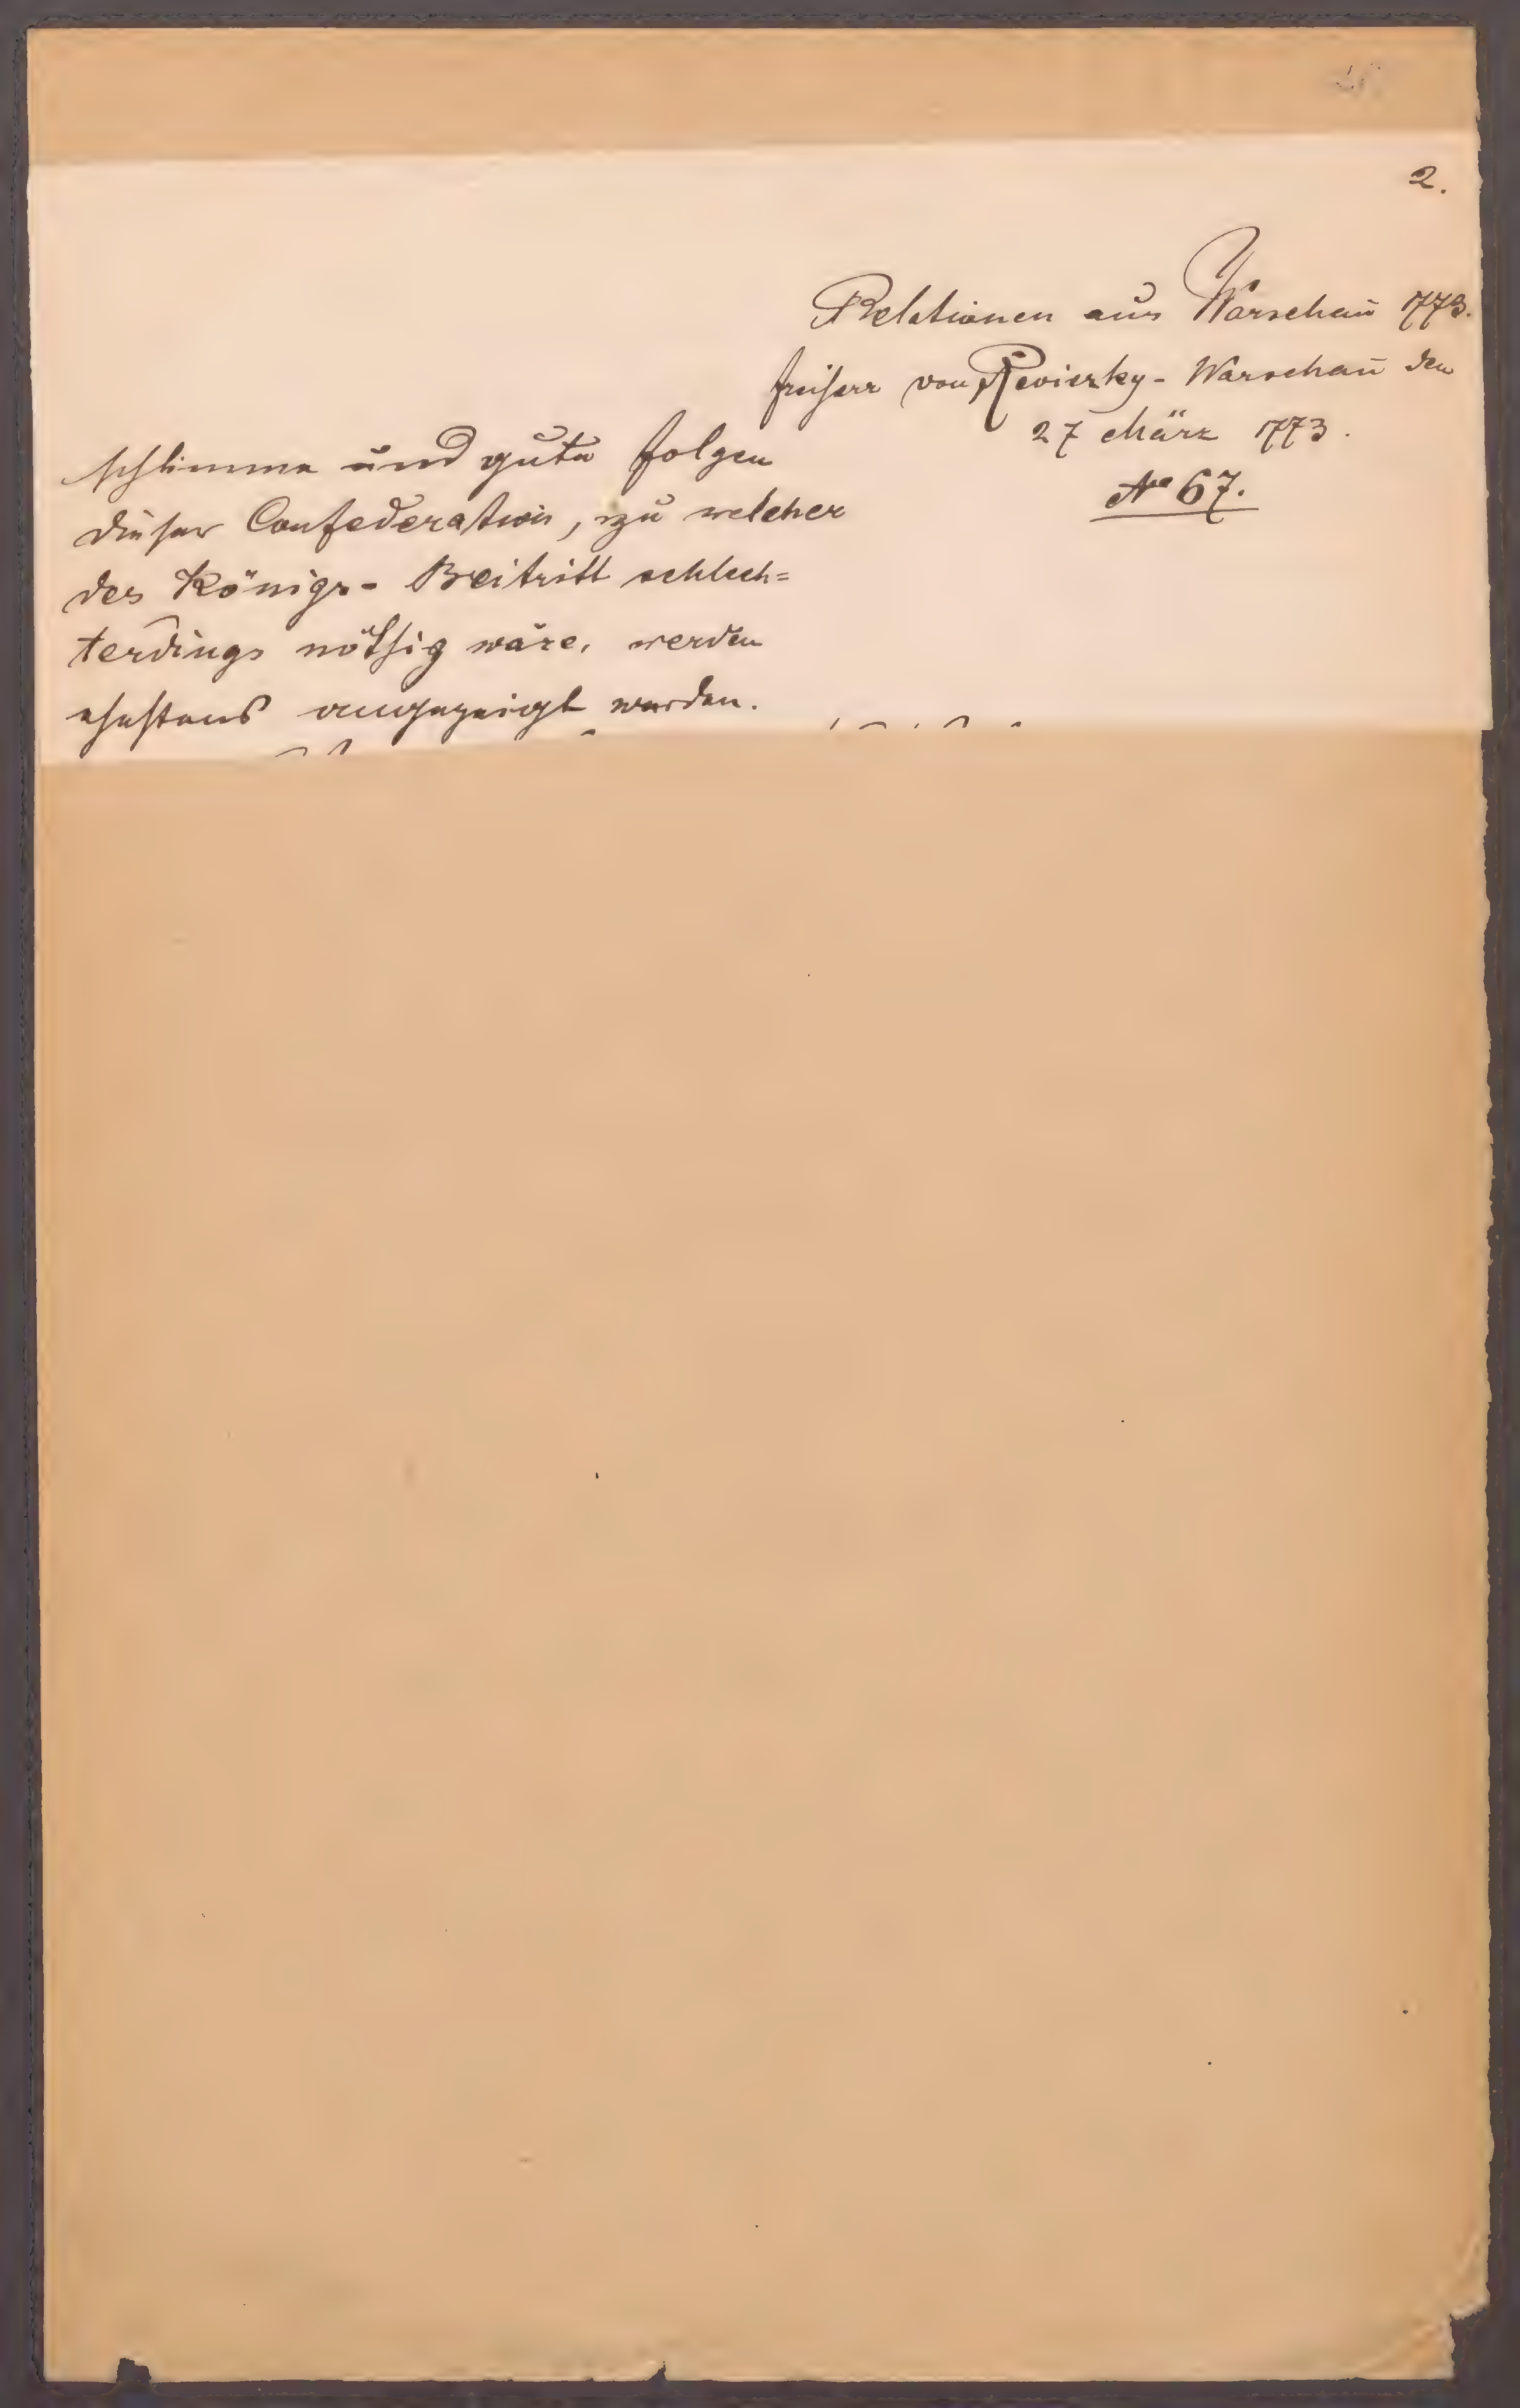 2.
Relationen aus Warschau 1773.
freiherr von Reviczky - Warschau den
27 März 1773.
No 67.
schlimme und gute folgen
dieser Confederation, zu welcher
des Königs - Beitritt schlech=
terdings nöthig wäre, werden
ehestens angezeigt werden.